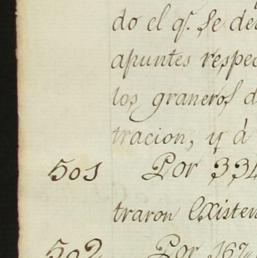 do el qᵉ. Se de
apuntes respec
los graneros d
tracion, y á
501 Por 334
traron Existen
502 Por 167